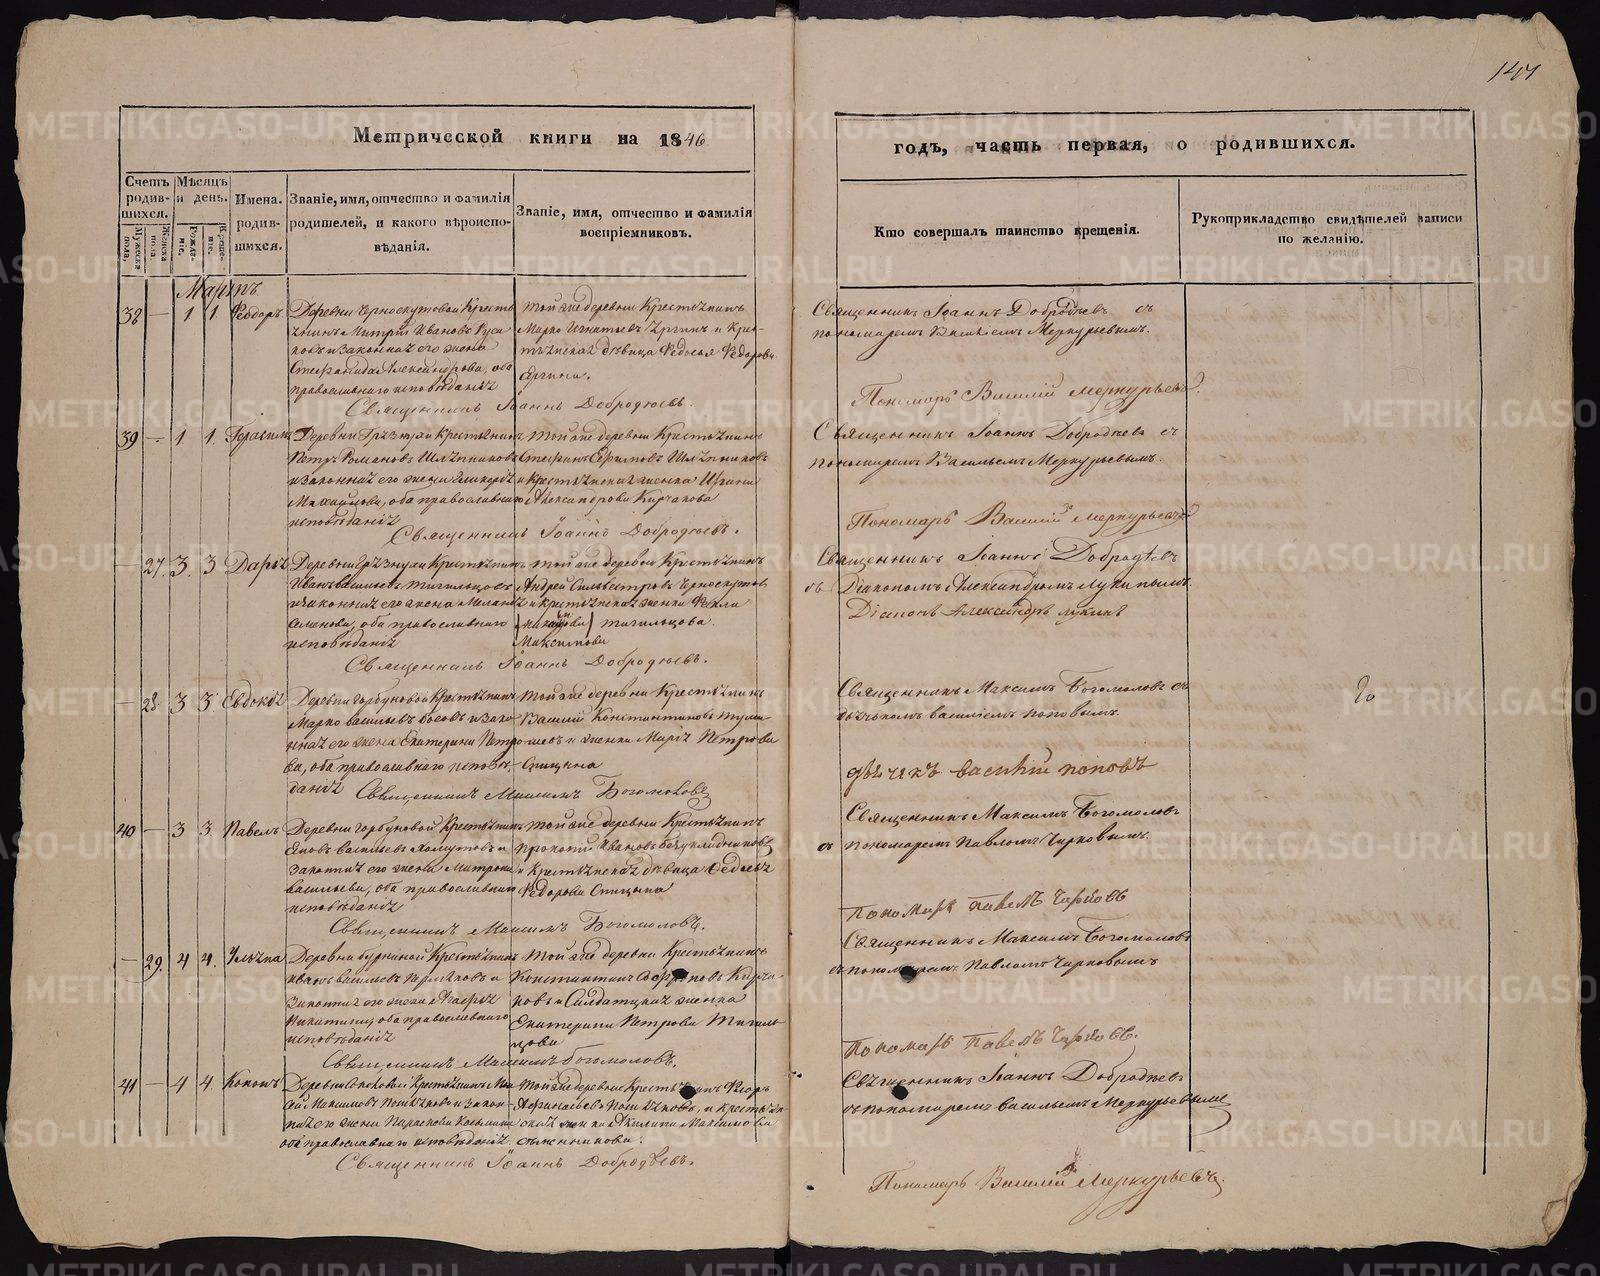 141
Метрической книги на 1846
годъ, часть первая, о родившихся.
Счетъ родившихся.
Мужеска пола.
Женска пола.
Мѣсяцъ и день.
Рожденіе.
Крещеніе.
Имена родившихся.
Званіе, имя, отчество и фамилія
родителей, и какого вѣроиспо-
вѣданія.
Званіе, имя, отчество и фамилія
воспріемниковъ.
Кто совершалъ таинство крещенія.
Рукоприкладство свидѣтелей записи
по желанію.
Мартъ
38 — 1 1 Ѳеодоръ
Деревни Черноскутовой Кресть
янинъ Митрій Ивановъ Руса
ковъ и законная его жена
Степанида Александрова, оба
православнаго исповѣданія
Той же деревни Крестьянинъ
Марко Игнатьевъ и Кре-
стьянская дѣвица Ѳедосья Ѳедорова
Священникъ Іоаннъ Добродѣевъ.
Священникъ Іоаннъ Добродѣевъ съ
пономаремъ Васильемъ Меркурьевымъ.
Пономарь Василій Меркурьевъ
39 — 1 1 Герасимъ
Деревни Грязнухи Крестьянинъ
Петръ Романовъ Шляпниковъ
и законная его жена Гликерія
Михайлова, оба православнаго
исповѣданія
Той же деревни Крестьянинъ
Стефанъ Ефимовъ Шляпниковъ
и крестьянская женка Ирина
Александрова Корчакова
Священникъ Іоаннъ Добродѣевъ.
Священникъ Іоаннъ Добродѣевъ съ
пономаремъ Васильемъ Меркурьевымъ.
Пономарь Василій Меркурьевъ
— 27. 3. 3 Дарья
Деревни Грязнухи Крестьянинъ
Иванъ Васильевъ Тагильцовъ
и законная его жена Меланья
Семенова, оба православнаго
исповѣданія
Той же деревни Крестьянинъ
Андрей Сильвестровъ Черноскутовъ
и крестьянская женка Ѳекла
Тагильцова.
Максимова
Священникъ Іоаннъ Добродѣевъ.
Священникъ Іоаннъ Добродѣевъ
съ Діакономъ Александромъ Лукинымъ.
Діаконъ Александръ Лукинъ
— 28 3 3 Евдокія
Деревни Горбуновой Крестьянинъ
Марко Васильевъ Босовъ и зако
нная его жена Екатерина Петро
ва, оба православнаго исповѣ-
данія
Той же деревни Крестьянинъ
Василій Константиновъ
и женка Марія Петрова
Спицына
Священникъ Максимъ Богомоловъ
Священникъ Максимъ Богомоловъ съ
дьячкомъ Василіемъ Поповымъ.
дьячекъ Василій Поповъ
40 — 3 3 Павелъ
Деревни Горбуновой Крестьянинъ
Яковъ Васильевъ Хомутовъ и
законная его жена Матрона
Васильева, оба православнаго
исповѣданія
Той же деревни Крестьянинъ
Прокопій Ивановъ Безукладниковъ
и Крестьянская дѣвица Ѳедосья
Ѳедорова Спицына
Священникъ Максимъ Богомоловъ.
Священникъ Максимъ Богомоловъ
съ пономаремъ Павломъ Чирковымъ.
Пономарь Павелъ Чирковъ
— 29. 4 4. Ульяна
Крестьянинъ
Иванъ Васильевъ и
законная его жена
Никитина, оба православнаго
исповѣданія
Той же деревни Крестьянинъ
Константинъ Софроновъ Корча-
ковъ и Солдатская женка
Екатерина Петрова Тагиль-
цова
Священникъ Максимъ Богомоловъ.
Священникъ Максимъ Богомоловъ
съ пономаремъ Павломъ Чирковымъ
Пономарь Павелъ Чирковъ.
41 — 4 4. Кононъ
Деревни Соколовой Крестьянинъ
Максимовъ и закон-
ная его жена Параскева
оба православнаго исповѣданія.
Той же деревни Крестьянинъ Егоръ
Аѳанасьевъ и крестьян
ская женка Акилина Максимова
Священникъ Іоаннъ Добродѣевъ.
Священникъ Іоаннъ Добродѣевъ
съ пономаремъ Васильемъ Меркурьевымъ
Пономарь Василій Меркурьевъ.
METRIKI.GASO-URAL.RU